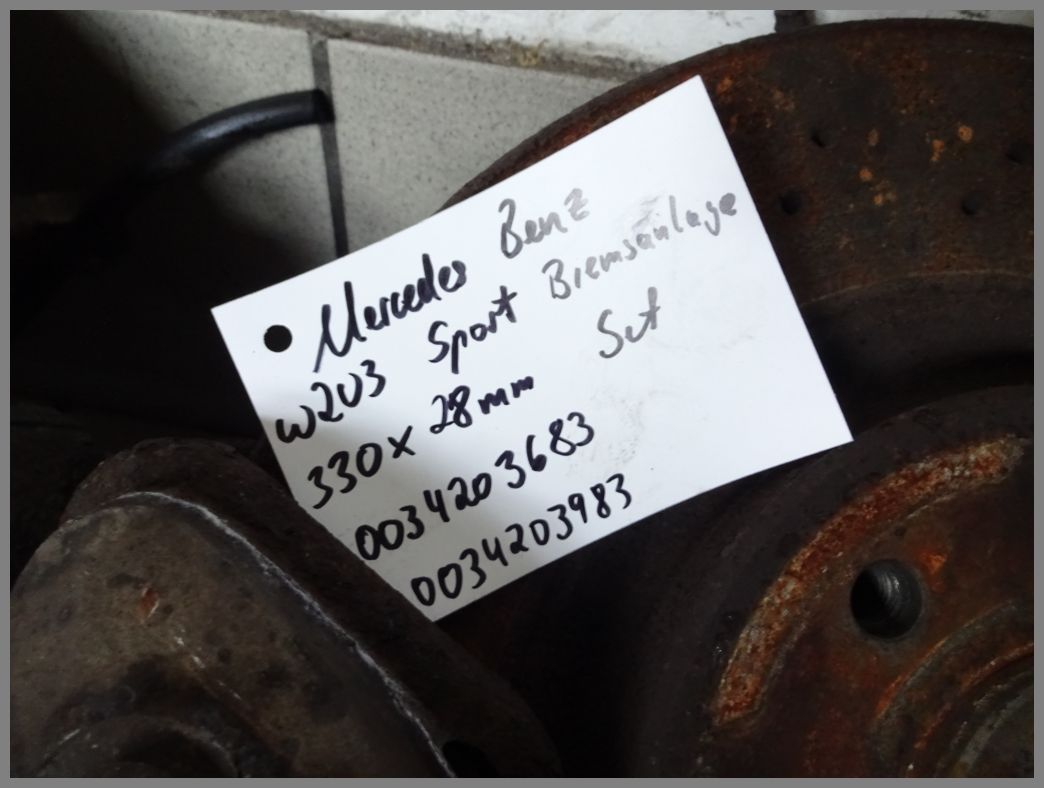 Mercedes Benz
W203 Sport Bremsanlage
330x28mm Set
0034203683
0034203983